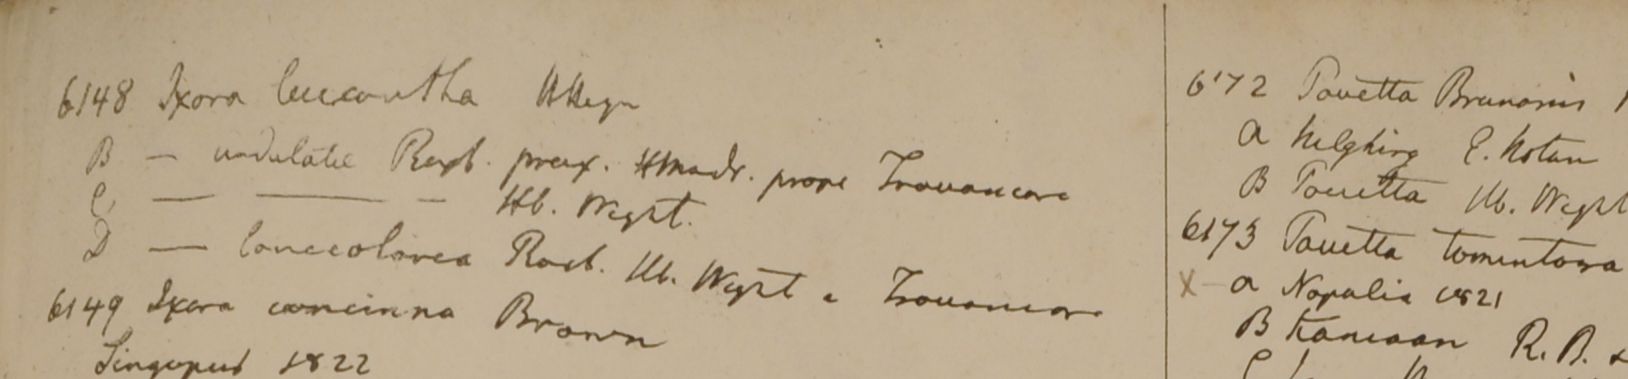 6148 Ixora leucantha HHeyn
B — undulata Roxb. prax. HMadr. prope Travancore
C — — — Hb. Wight.
D — lanceolarea Roxb. Hb. Wight e Travancore
6149 Ixora concinna Brown
Singapur 1822
6172 Pavetta Brunonis
a Nilghirg E. Noton
B Pavetta Hb. Wight
6173 Pavetta tomentosa
X a Napalia 1821
B Kamaon R. B.